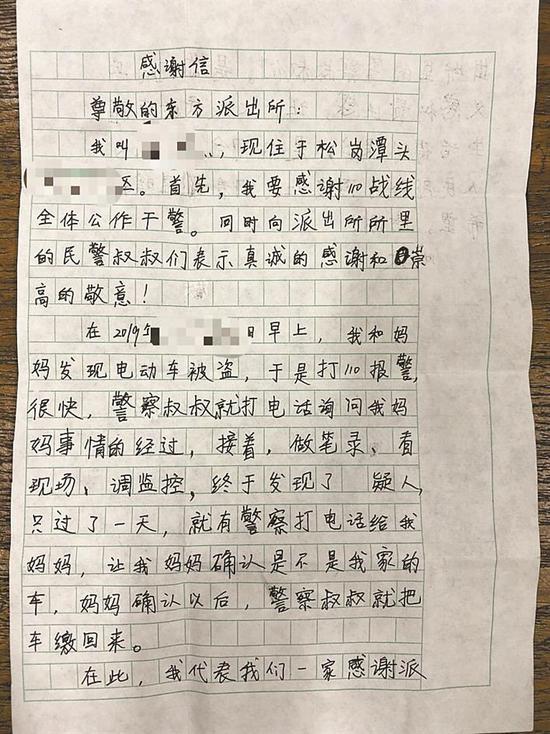 感谢信
尊敬的东方派出所：
我叫，现住于松岗潭头
区。首先，我要感谢110战线
全体公作干警。同时向派出所所里
的民警叔叔们表示真诚的感谢和崇
高的敬意！
在2019年日早上，我和妈
妈发现电动车被盗，于是打110报警，
很快，警察叔叔就打电话询问我妈
妈事情的经过，接着，做笔录、看
现场、调监控，终于发现了 疑人，
只过了一天，就有警察打电话给我
妈妈，让我妈妈确认是不是我家的
车，妈妈确认以后，警察叔叔就把
车缴回来。
在此，我代表我们一家感谢派